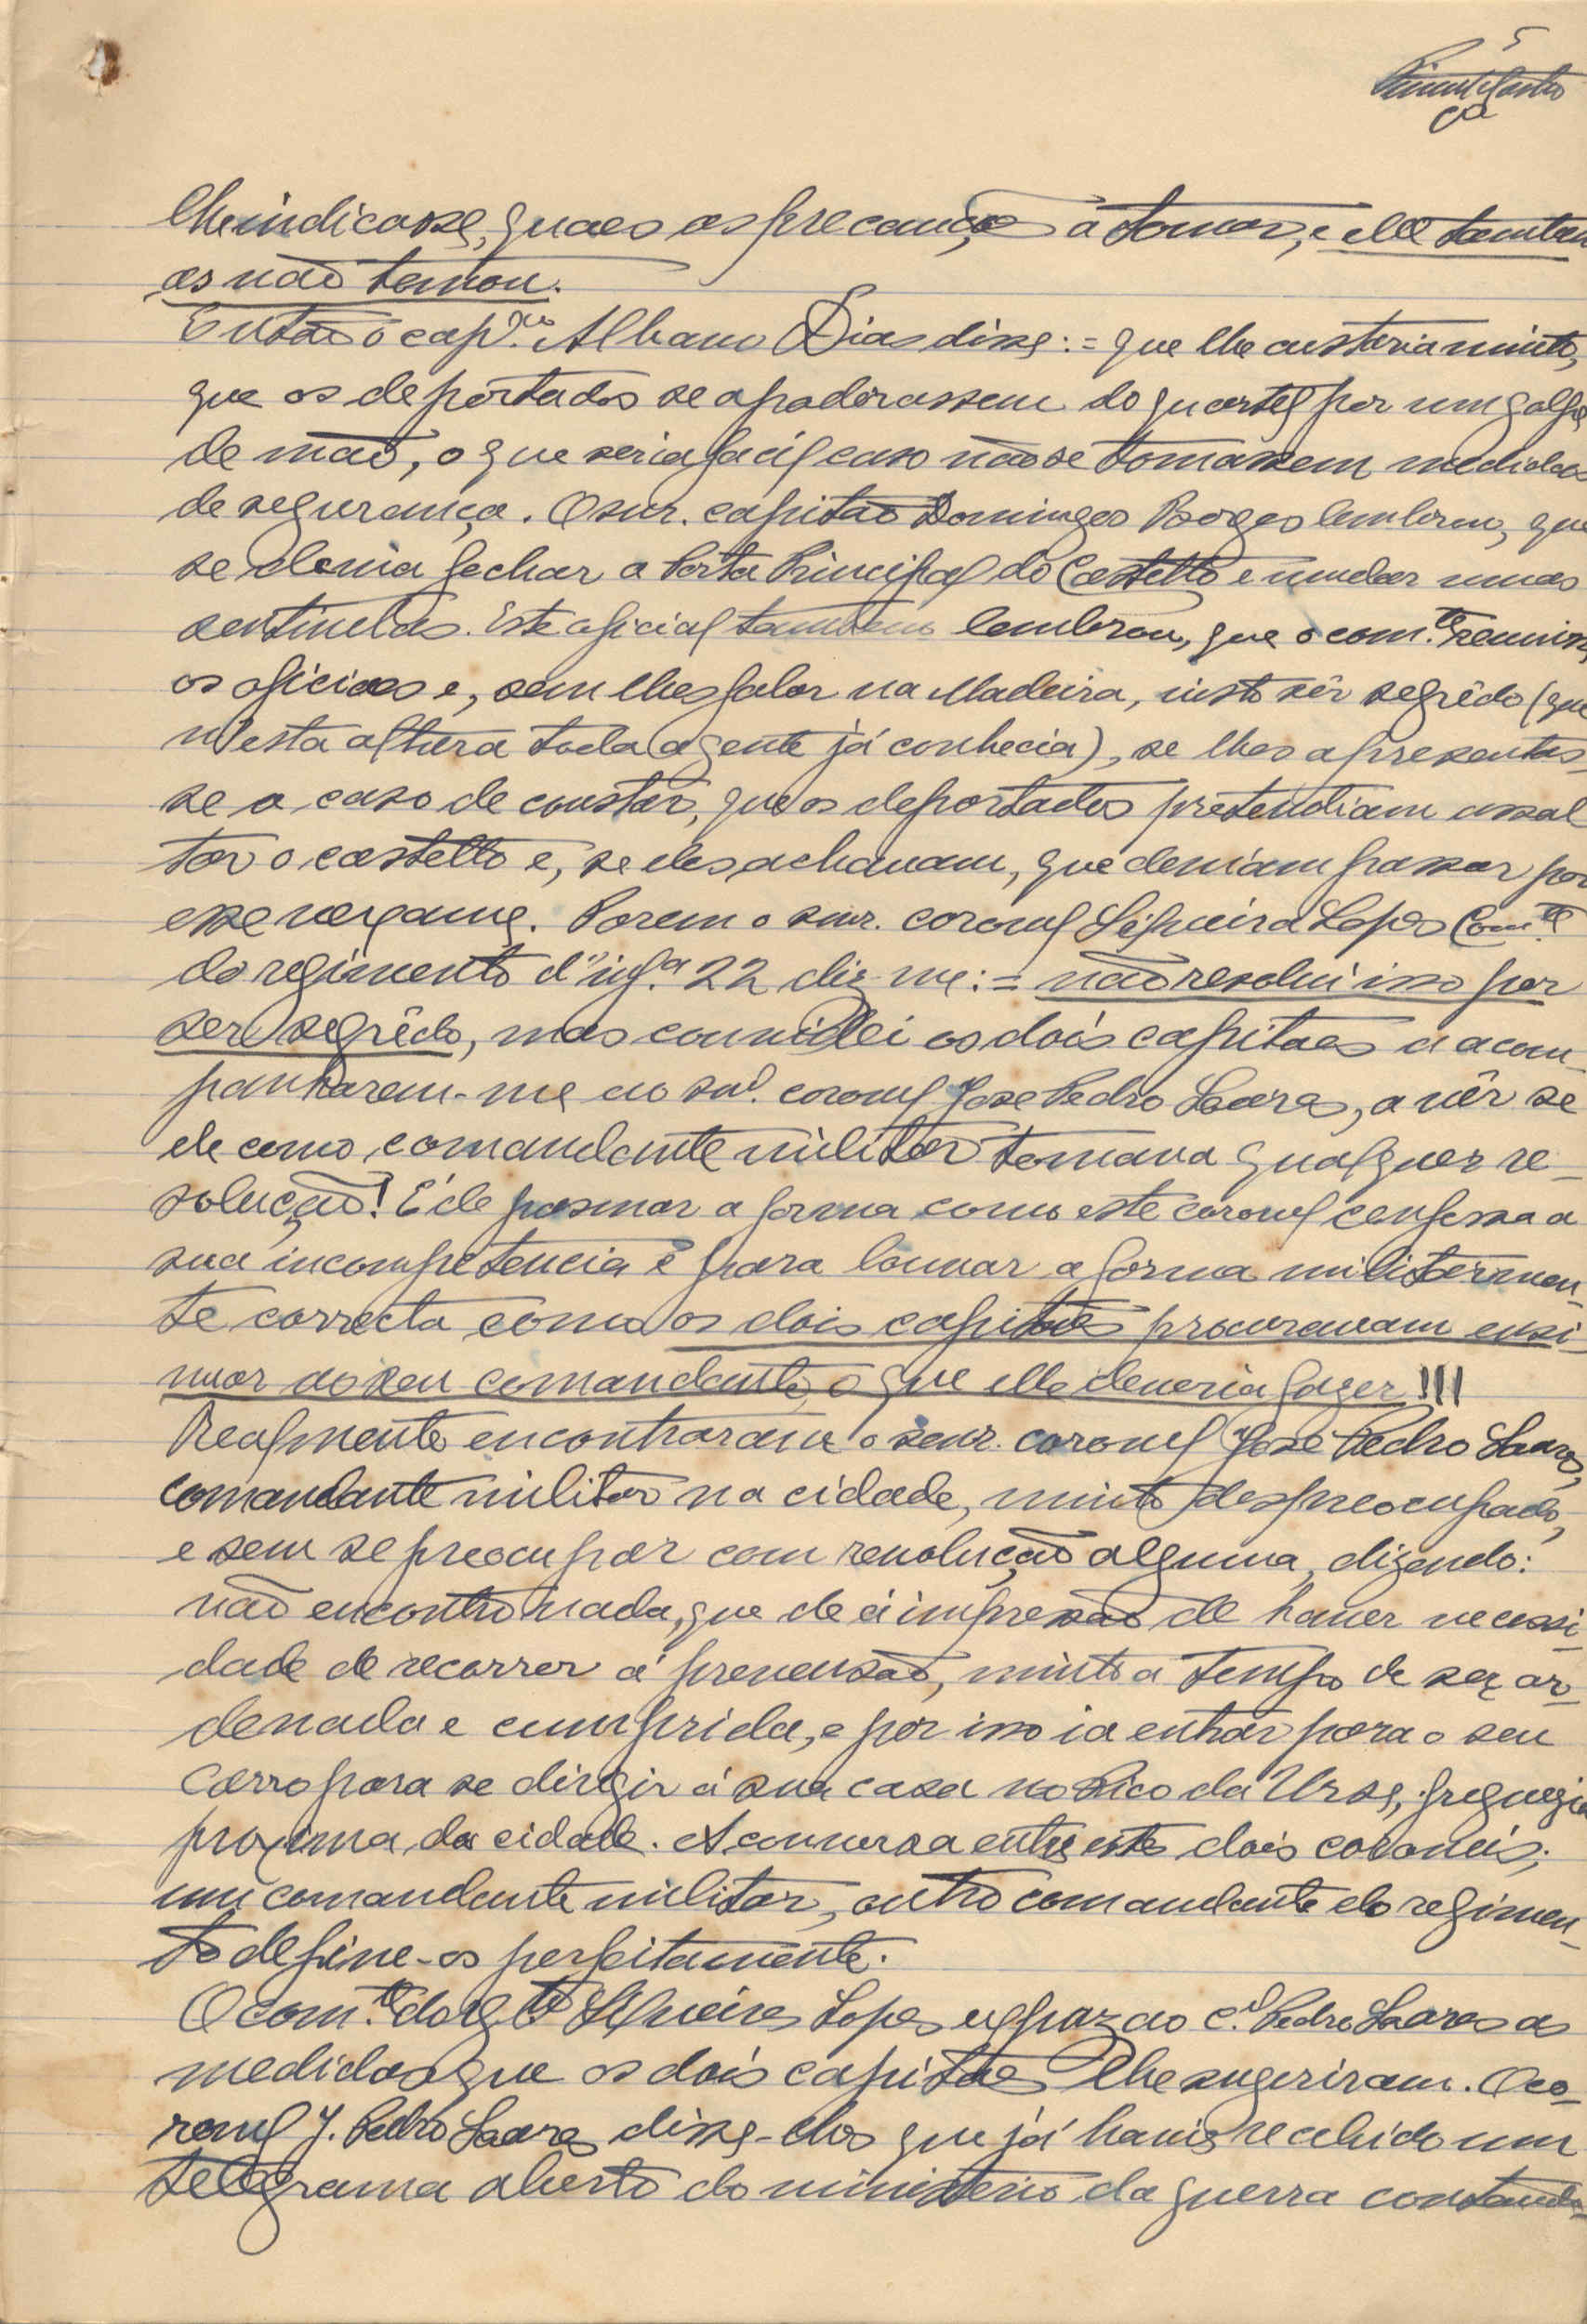 5
lhe indicasse, quaes as precauções a tomar, e elle tambem
as não tomou.
Então o cap.ᵐ Albano Dias disse: = que lhe custaria muito,
que os deportados se apoderassem do quartel por um golpe
de mão, o que seria facil caso não se tomassem medidas
de segurança. O snr. capitão Domingos Borges lembrou, que
se devia fechar a Porta Principal do Castello e mudar umas
sentinelas. Este oficial tambem lembrou, que o com.te reunisse
os oficiaes e, sem lhes falar na Madeira, visto sêr segrêdo (que
n'esta altura toda a gente já conhecia), se lhes apresentas-
se o caso de constar, que os deportados pretendiam assal
tar o castello e, se eles achavam, que deviam passar por
esse vexame. Porem o snr. coronel Siqueira Lopes Com.te
do regimento d'inf.a 22 diz-me: = não resolvi isso por
ser segrêdo, mas convidei os dois capitães a acom-
panharem-me ao snr. coronel José Pedro Soares, a vêr se
ele como comandante militar tomava qualquer re-
solução! É de pasmar a forma como este coronel confessa a
sua incompetencia e para louvar a forma militarmen-
te correcta como os dois capitães procuravam ensi-
nuar ao seu comandante o que elle deveria fazer!!!
Realmente encontraram o senr. coronel José Pedro Soares,
comandante militar na cidade, muito despreocupado,
e sem se preocupar com revolução alguma, dizendo:
não encontro nada, que dê a impressão de haver necessi-
dade de recorrer á prevensão, muito a tempo de ser or-
denada e cumprida, e por isso ia entrar para o seu
carro para se dirigir á sua casa no Pico da Urse, freguezia
proxima da cidade. A conversa entre estes dois coroneis;
um comandante militar, outro comandante do regimen-
to define-os perfeitamente.
O com.te do reg.to Siqueira Lopes expoz ao c.el Pedro Soares as
medidas que os dois capitães lhe sugeriram. O co-
ronel J. Pedro Soares disse-lhes que já havia recebido um
telegrama aberto do ministerio da guerra constando-